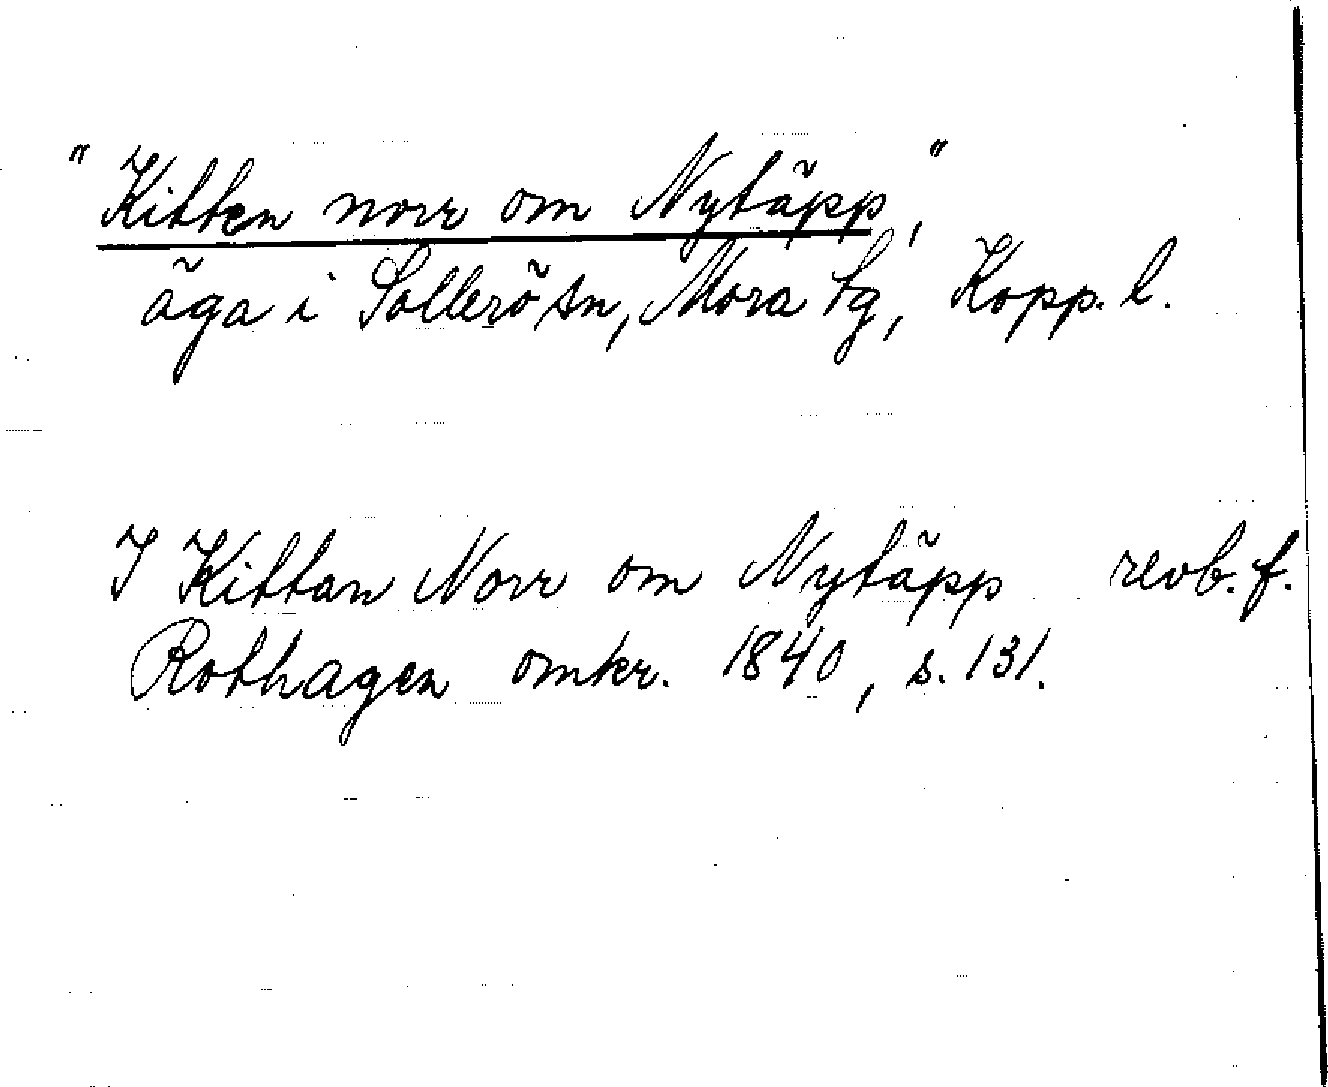 "Kitten norr om Nytäpp",
äga i Sollerö sn, Mora tg, Kopp. l.
I Kittan Norr om Nytäpp revb. f.
Rothagen omkr. 1840, s. 131.